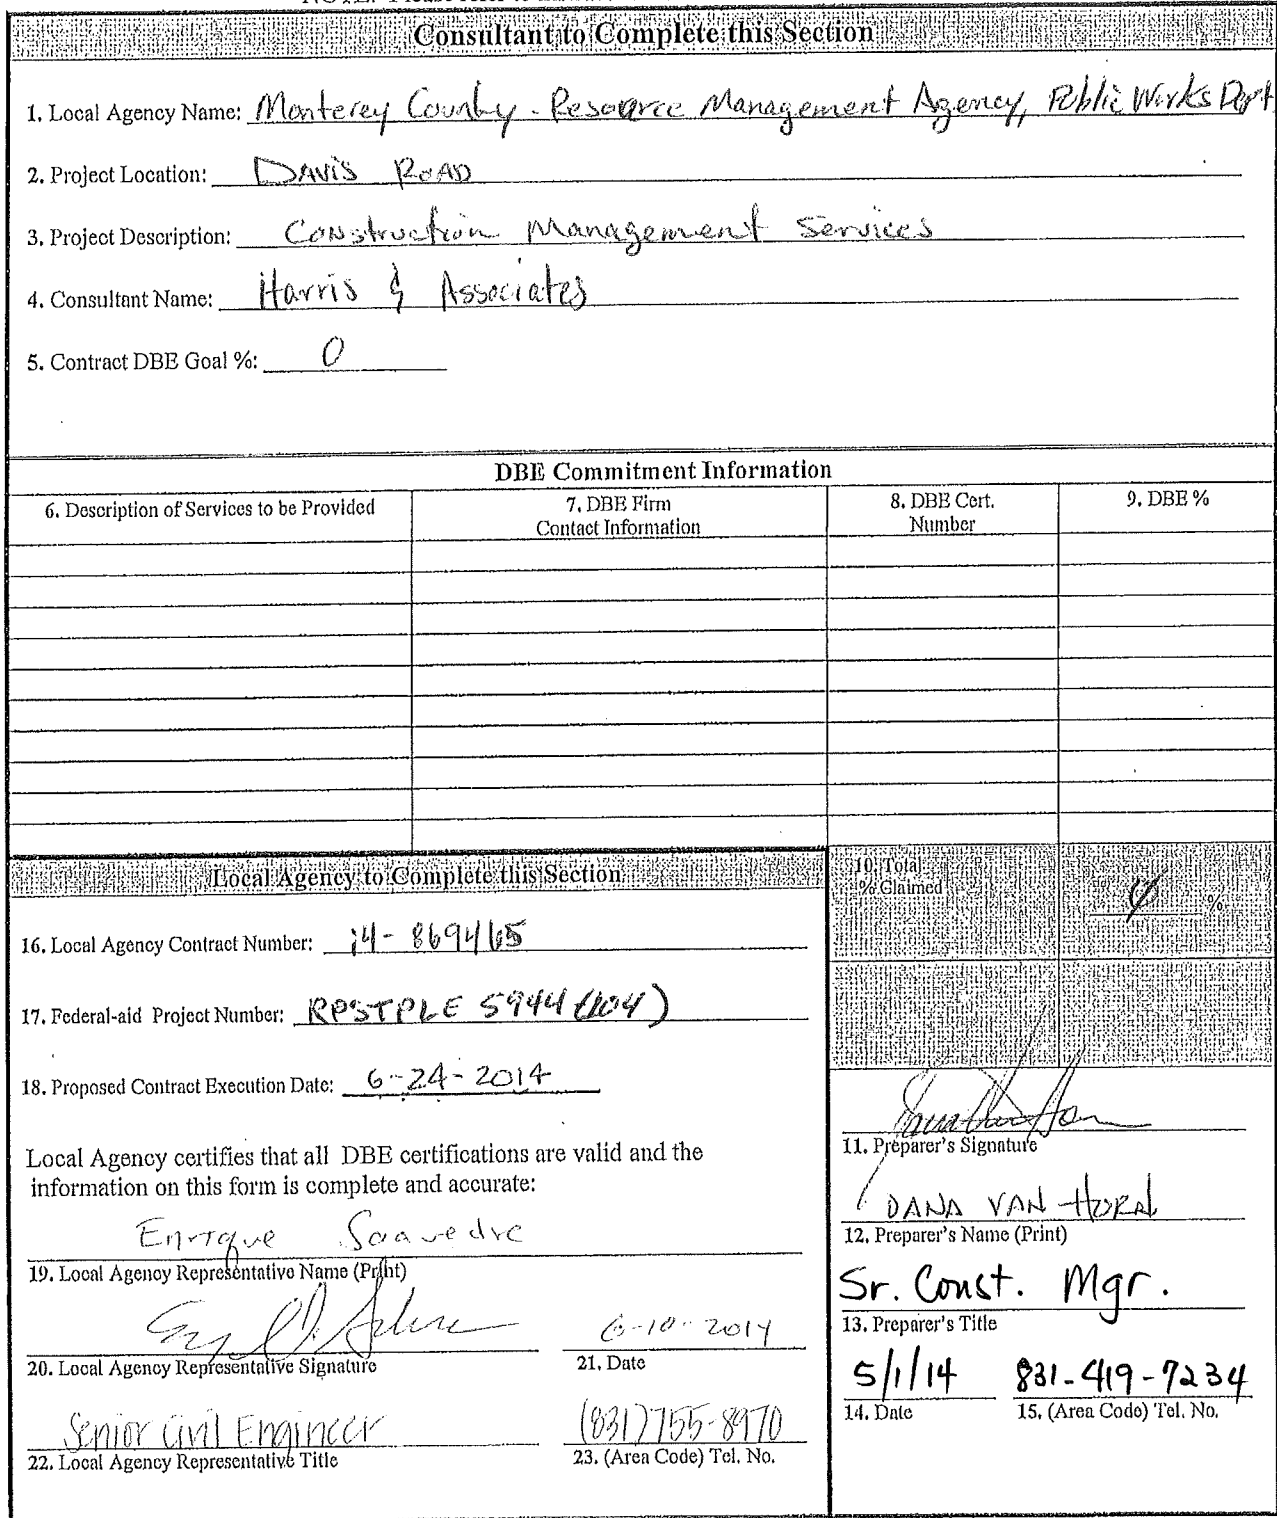 Consultant to Complete this Section
1. Local Agency Name: Monterey County - Resource Management Agency, Public Works Dept
2. Project Location: DAVIS ROAD
3. Project Description: Construction Management Services
4. Consultant Name: Harris & Associates
5. Contract DBE Goal %: 0
DBE Commitment Information
6. Description of Services to be Provided
7. DBE Firm
Contact Information
8. DBE Cert.
Number
9. DBE %
Local Agency to Complete this Section
10. Total
% Claimed
%
16. Local Agency Contract Number: 14-869465
17. Federal-aid Project Number: RPSTPLE 5944 (104)
18. Proposed Contract Execution Date: 6-24-2014
Local Agency certifies that all DBE certifications are valid and the
information on this form is complete and accurate:
Enrique Saavedra
19. Local Agency Representative Name (Print)
20. Local Agency Representative Signature
6-10-2014
21. Date
Senior Civil Engineer
22. Local Agency Representative Title
(831)755-8970
23. (Area Code) Tel. No.
11. Preparer's Signature
DANA VAN HORN
12. Preparer's Name (Print)
Sr. Const. Mgr.
13. Preparer's Title
5/1/14
14. Date
831-419-7234
15. (Area Code) Tel. No.